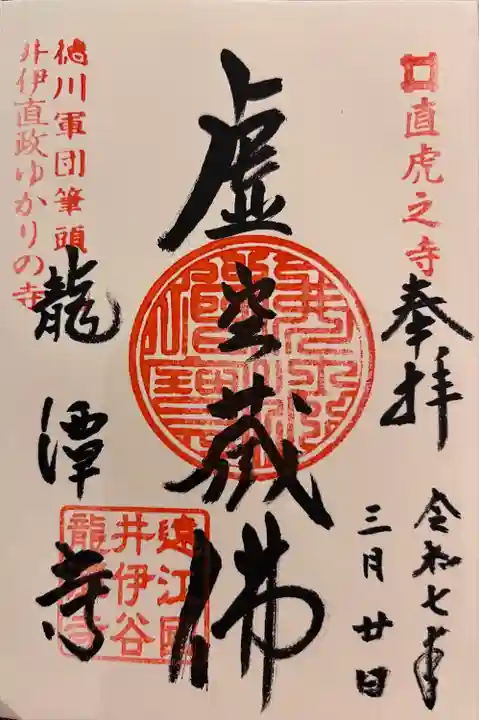 直虎之寺
奉拝
令和七年
三月廿日
虚空蔵佛
徳川軍団筆頭
井伊直政ゆかりの寺
龍潭寺
遠江國
井伊谷
龍潭寺